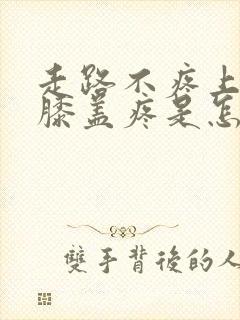 走路不疼上
膝盖疼是怎
雙手背後的人